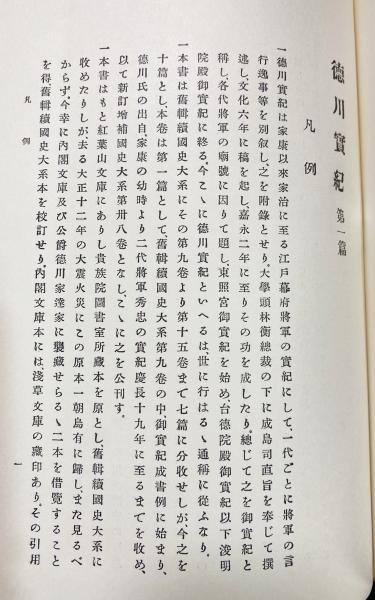 德川實紀 第一篇
凡例
一德川實紀は家康以來家治に至る江戸幕府將軍の實紀にして、一代ごとに將軍の言
行逸事等を別叙し、之を附錄とせり。大學頭林衡總裁の下に成島司直旨を奉じて撰
述し、文化六年に稿を起し、嘉永二年に至りその功を成したり。總じて之を御實紀と
稱し、各代將軍の廟號に因りて題し、東照宮御實紀を始め、台德院殿御實紀以下浚明
院殿御實紀に終る。今こゝに德川實紀といへるは世に行はるゝ通稱に從ふなり。
一本書は舊輯續國史大系にその第九卷より第十五卷まで七篇に分收せしが今之を
十篇とし、本卷は第一篇として、舊輯續國史大系第九卷の中、御實紀成書例に始まり、
德川氏の出自、家康の幼時より二代將軍秀忠の實紀慶長十九年に至るまでを收め、
以て新訂增補國史大系第卅八卷となし、こゝに之を公刊す。
一本書はもと紅葉山文庫にありし貴族院圖書室所藏本を原とし、舊輯續國史大系に
收めたりしが、去る大正十二年の大震火災にこの原本一朝烏有に歸し、また見るべ
からず。今幸に內閣文庫及び公爵德川家達家に襲藏せらるゝ二本を借覽すること
を得舊輯續國史大系本を校訂せり。內閣文庫本には、淺草文庫の藏印あり。その引用
凡例
一